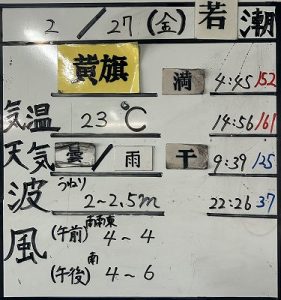 2/27(金) 若潮
黄旗 満 4:45 152
気温 23℃ 14:56 161
天気 曇/雨 干 9:39 125
波 うねり 2~2.5m 22:26 37
風 (午前) 南南東 4~4
(午後) 南 4~6